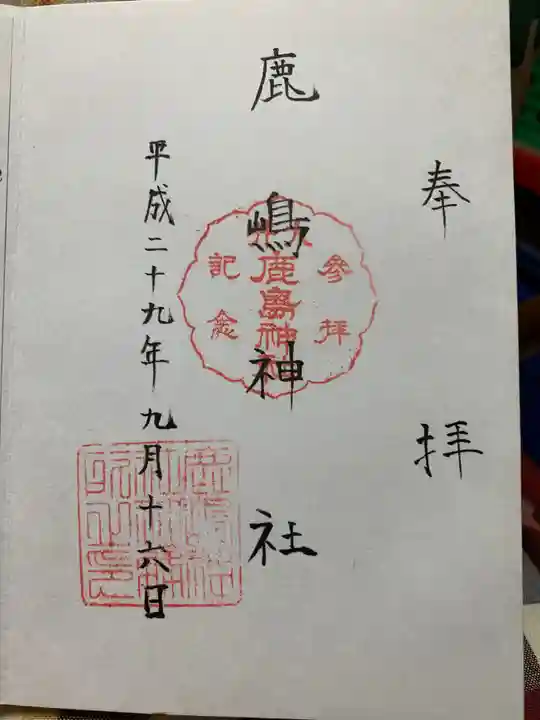 奉拝
鹿嶋神社
参拝
鹿島神社
記念
平成二十九年九月十六日